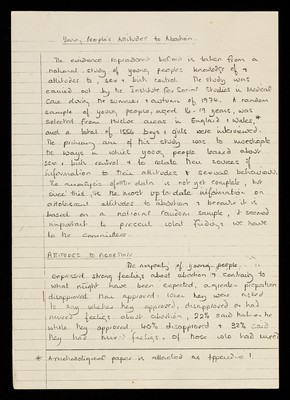 Young People's Attitudes to Abortion.
The evidence reproduced below is taken from a
national study of young people's knowledge of +
attitudes to, sex + birth control. The study was
carried out by the Institute for Social Studies in Medical
Care during the summer + autumn of 1974. A random
sample of young people, aged 16-19 years, was
selected from twelve areas in England + Wales,*
and a total of 1556 boys + girls were interviewed.
The primary aim of this study was to investigate
the ways in which young people learned about
sex + birth control + to relate their sources of
information to their attitudes + sexual behaviour.
The analysis of the data is not yet complete, but
since this is the most up-to-date information on
adolescent attitudes to abortion + because it is
based on a national random sample, it seemed
important to present what findings we have
to the committee.
ATTITUDES TO ABORTION
The majority of young people
expressed strong feelings about abortion + contrary to
what might have been expected, a greater proportion
disapproved than approved. When they were asked
to say whether they approved, disapproved or had
mixed feelings about abortion, 22% said that on the
whole they approved, 40% disapproved + 38% said
they had mixed feelings. Of those who had mixed
* A methodological paper is attached as Appendix 1.